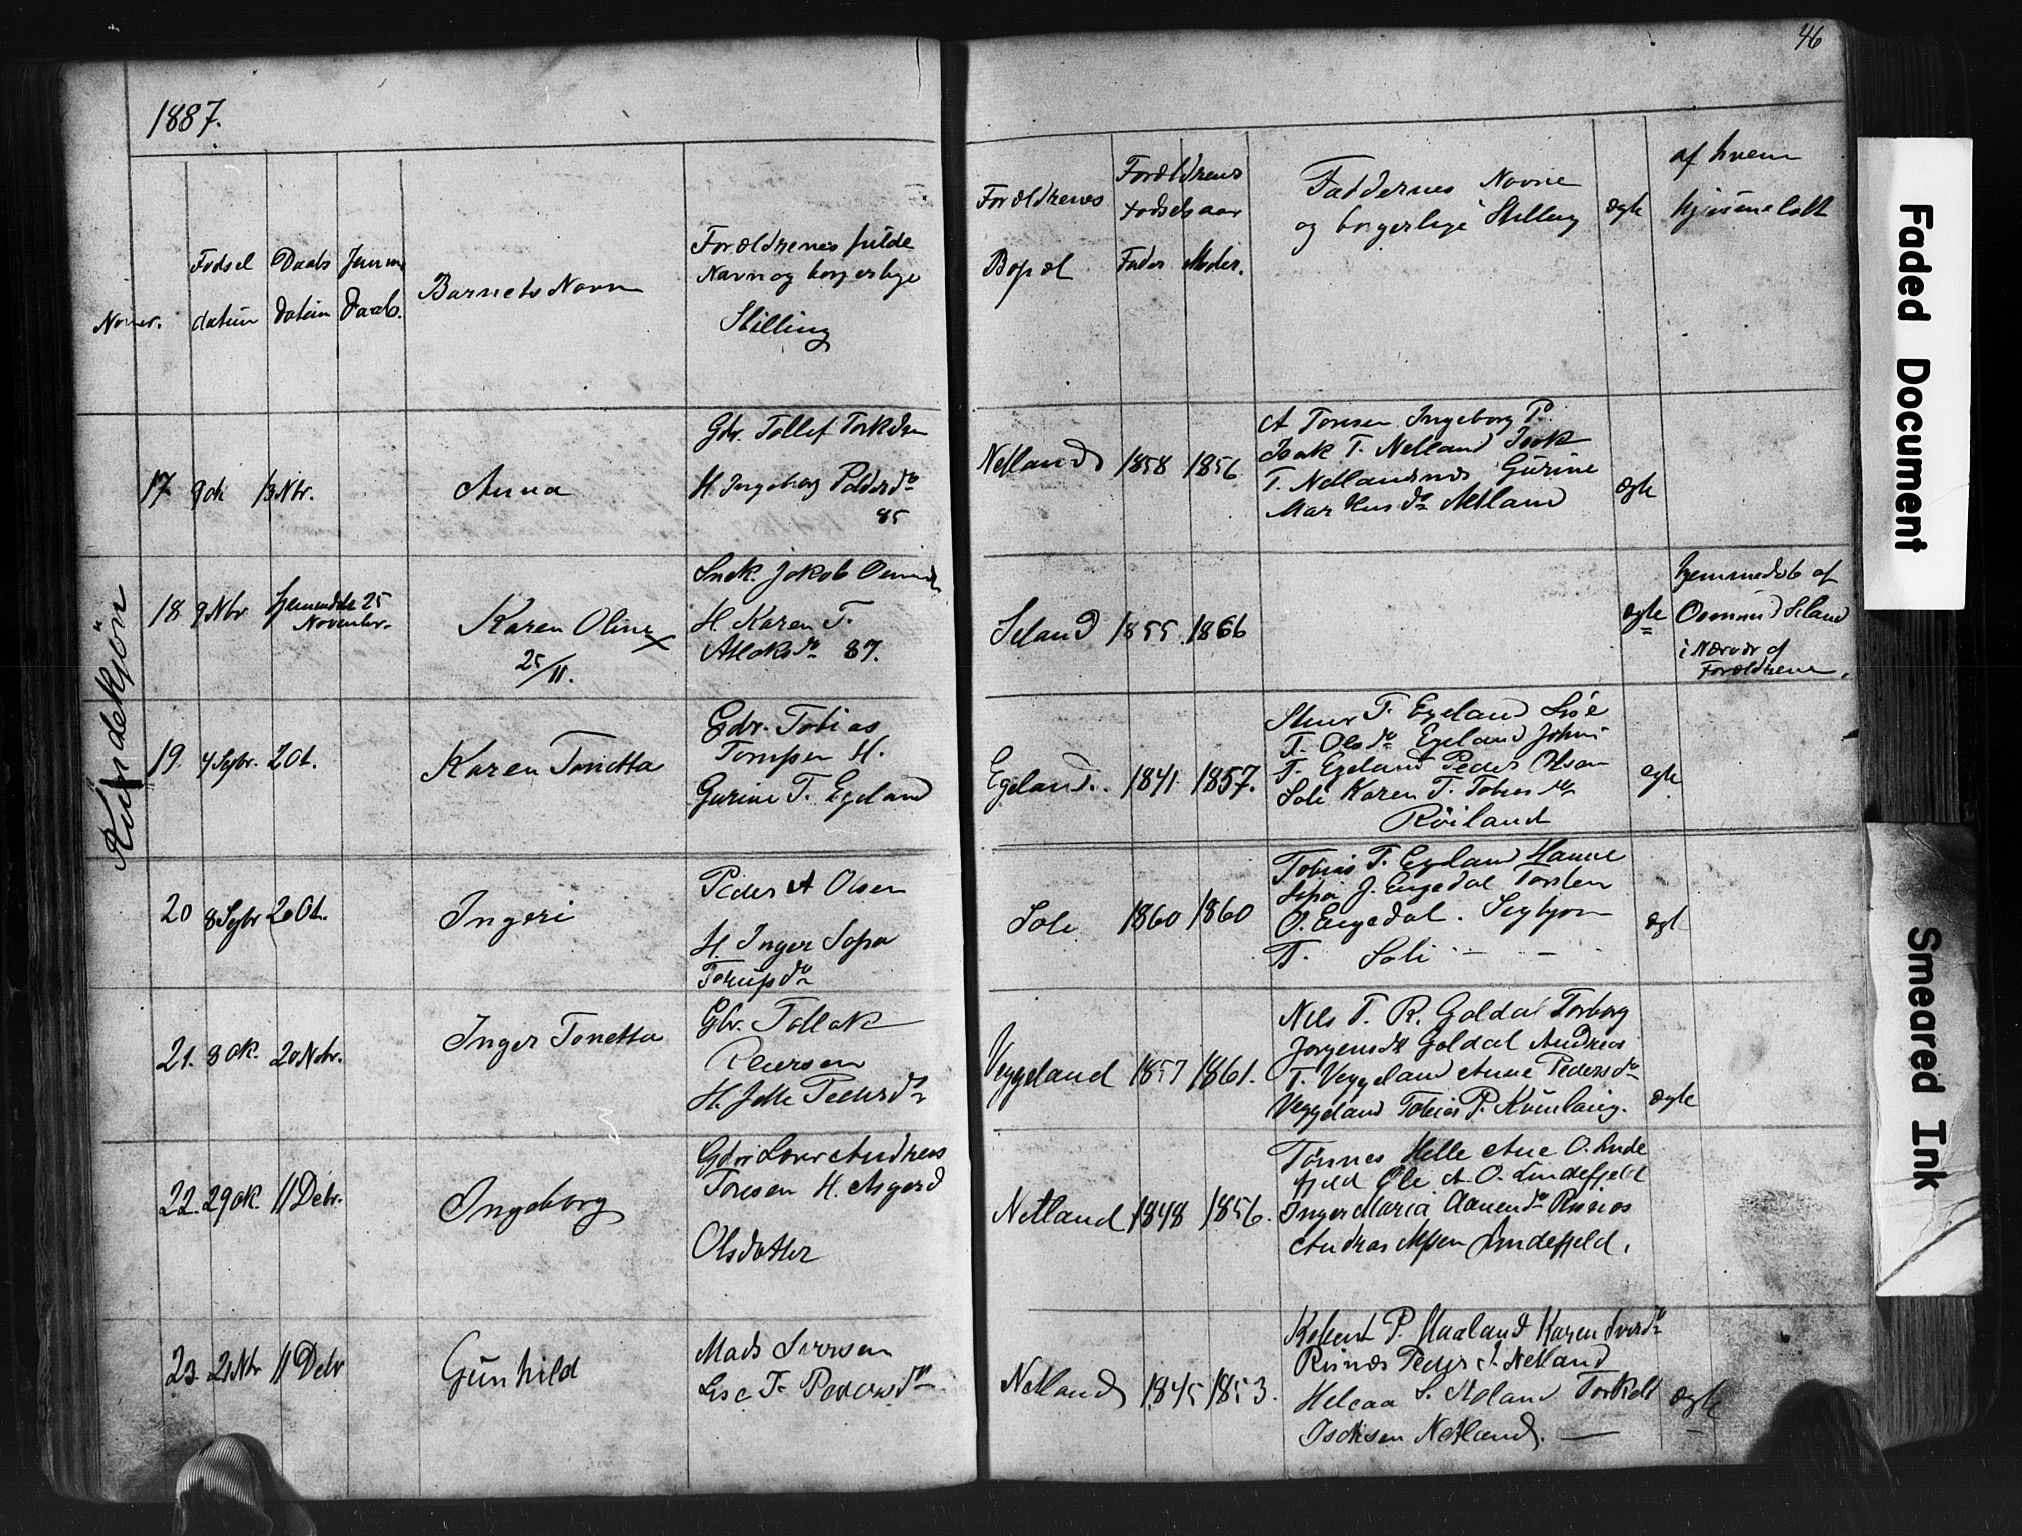 46
1887.
Nomer.
Fødsel
datum
Daabs
datum
Daab.
Barnets Navn
Forældrenes fulde
Navn og borgerlige
Stilling
Forældrenes
Bopæl
Forældrenes
Fødselsaar
Fader Moder.
Faddernes Navne
og borgerlige Stilling
ægte
af hvem
hjemmeløbt
Kvindekjön
17 9 Ok 13 Nbr.
Anna
Gbr. Tollef Torkelsen
H. Ingeborg Pedersdr
85
Netland 1858 1856
A Toresen Ingeborg P.
Isak T. Netland Isak
T. Netlandsnes Gurine
Markusdr Netland
ægte
18 9 Nbr hjemmedøbt 25
November.
Karen Oline x
25/11.
Insk. Jakob
H. Karen T.
Aslaksdr 87.
Seland 1855. 1866
ægte
hjemmedøbt af
Osmund Seland
i Nærvær af
Forældrene.
19. 4 Sepbr. 2 Ot.
Karen Tonetta
Gdbr. Tobias
Tomssen H.
Gurine T. Egeland
Egeland. 1841. 1857.
T. Egeland Lise
T. Olsdr Egeland
T. Egeland Peder Olsen
Soli Karen T. Tobiasdr
Röiland
ægte
20 8 Sepbr 2 Ot.
Ingeri
Peder A Olsen
H. Inger Sofia
Soli 1860 1860
Tobias T. Egeland Hanne
Sofia J. Eigedal Torsten
O. Eigedal. Segbjørn
T. Soli — —
ægt
21. 8 ok. 20 Nobr.
Inger Tonetta
Gbr. Tollak
Petersen
H. Jette Pedersdr
Veggeland 1857 1861.
Nils T. R. Goldal Torborg
Jørgensdt Goldal Andreas
T. Veggeland Anne Pedersdr
Veggeland Tobias P. Kvinlaug.
ægte
22. 29 ok. 11 Debr.
Ingeborg
Andreas
Toresen H. Asgerd
Olsdatter
Netland 1848 1856.
Tönnes Helle Ane O. Linde
fjeld Ole A. O. Lindefjeld
Inger Maria Aanensdr Risnes
Andreas Lindefjeld.
23. 21 Nbr 11 Debr
Gunhild
Mads Iversen
Lise T. Pedersdr
Netland 1845 1853.
P. Haaland Karen Iversdr
Risnes Peder I. Netland
S. Toland Torkild
Isaksen Netland. —
ægte
Faded Document
Smeared Ink